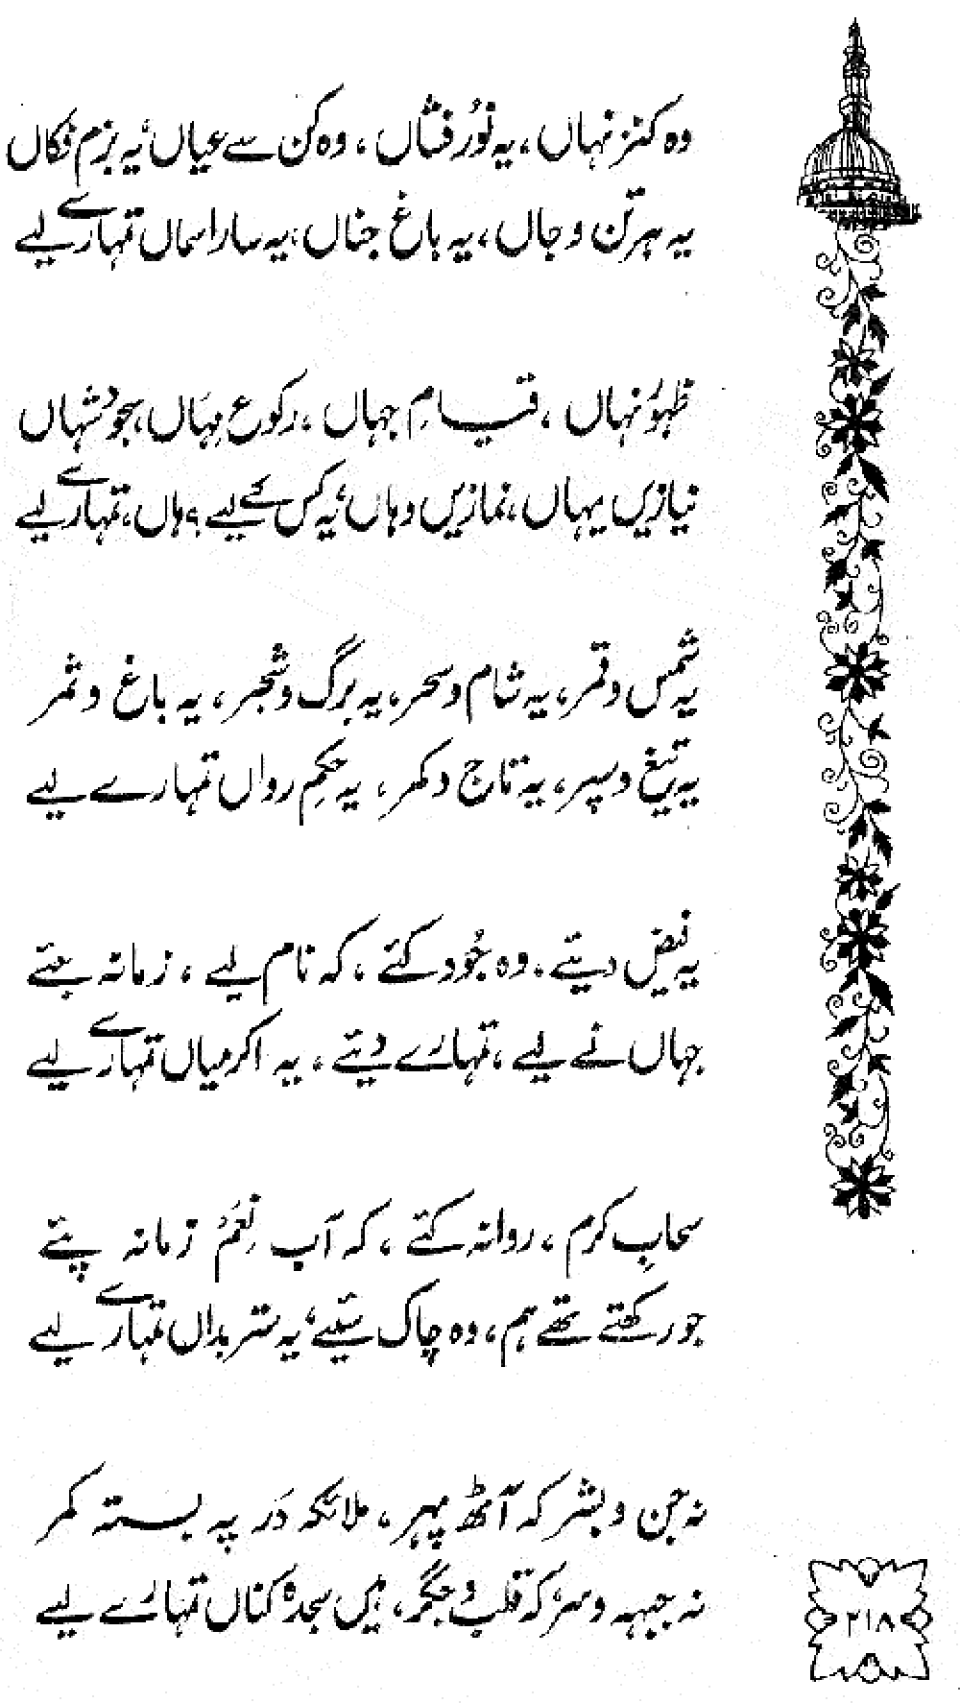 وہ کنزِ نہاں، یہ نُور فشاں، وہ کن سے عیاں، یہ بزمِ فکاں
یہ ہر تن و جاں، یہ باغِ جناں، یہ سارا سماں تمہارے لیے
ظہُورِ نہاں، قیامِ جہاں، رکوعِ مِہاں، سجودِ شہاں
نیازیں یہاں، نمازیں وہاں، یہ کس کے لیے، ہاں، تمہارے لیے
یہ شمس و قمر، یہ شام و سحر، یہ برگ و شجر، یہ باغ و ثمر
یہ تیغ و سپر، یہ تاج و کمر، یہ حکمِ رواں تمہارے لیے
یہ فیض دیئے، وہ جُود کئے، کہ نام لیے، زمانہ جئے
جہاں نے لیے، تمہارے دیئے، یہ اکرمیاں تمہارے لیے
سحابِ کرم، روانہ کئے، کہ آبِ نِعَمْ زمانہ پئے
جو رکھتے تھے ہم، وہ چاک سیئے، یہ ستر بداں تمہارے لیے
نہ جن و بشر کہ آٹھ پہر، ملائکہ دَر پہ بستہ کمر
نہ جبہہ و سر کہ قلب و جگر، ہیں سجدہ کناں تمہارے لیے
۲۱۸